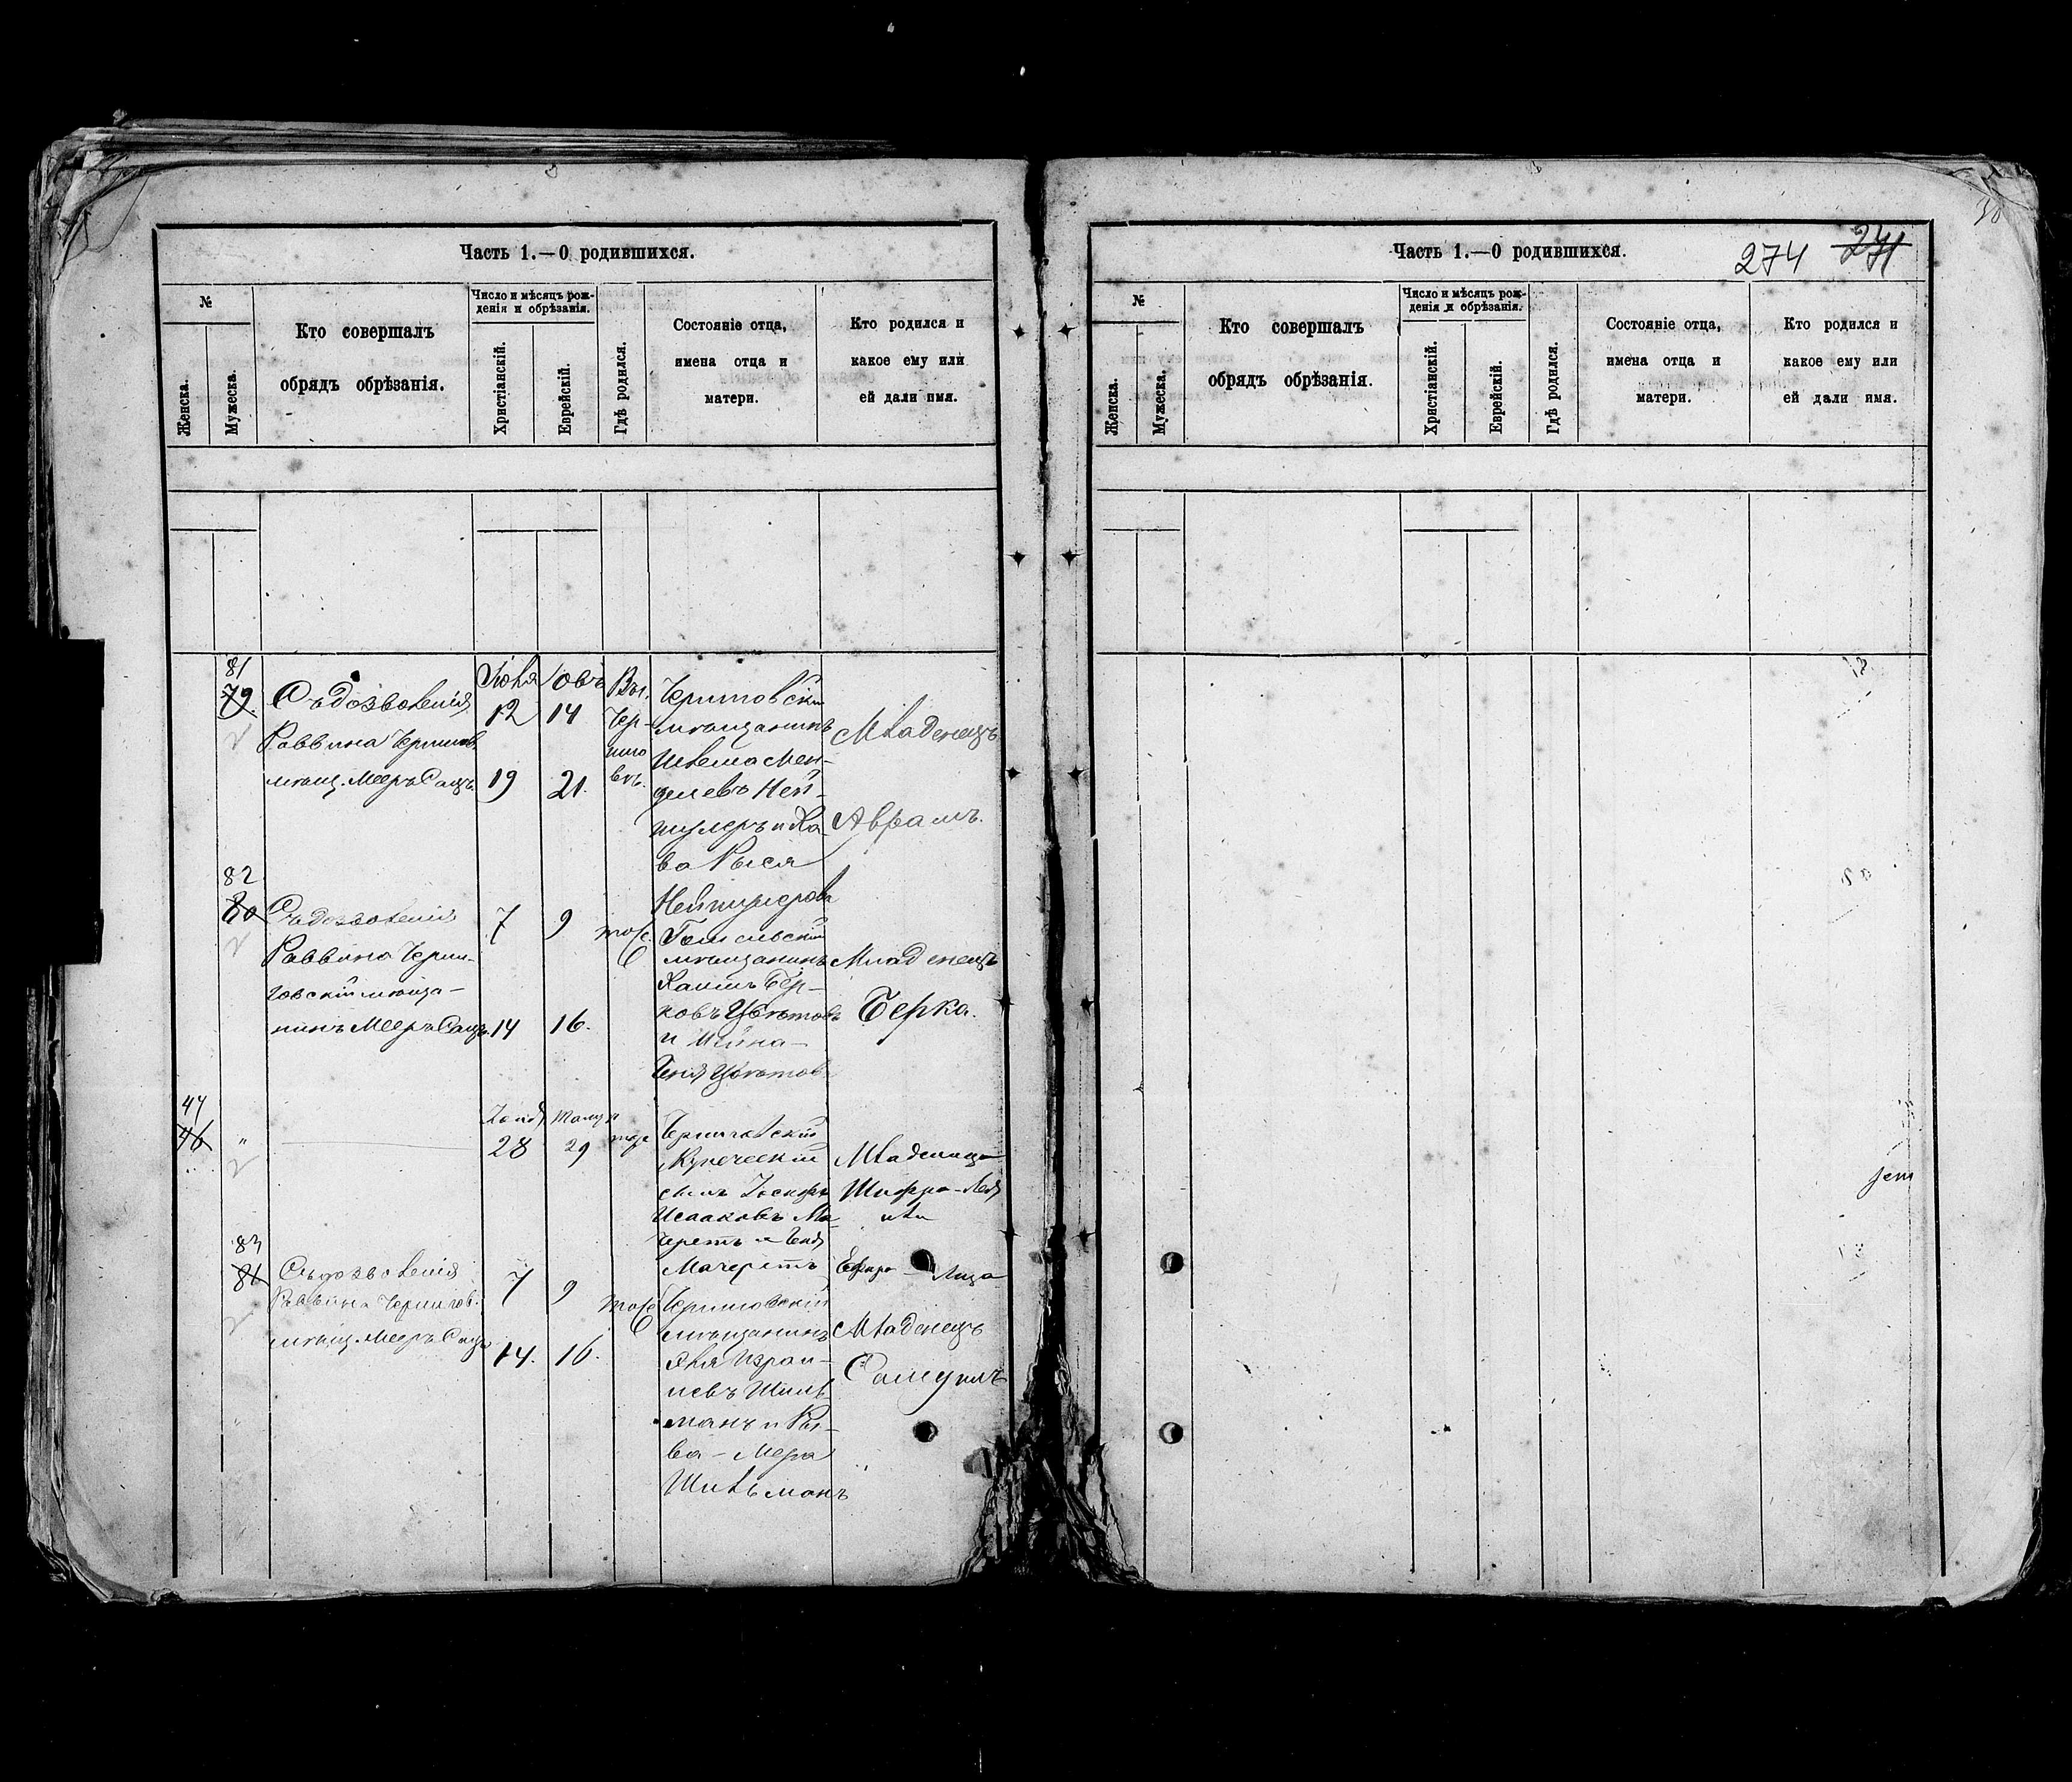 Часть 1.—О родившихся.
№
Женска.
Мужеска.
Кто совершалъ
обрядъ обрѣзанія.
Число и мѣсяцъ рож-
денія и обрѣзанія.
Христіанскій.
Еврейскій.
Гдѣ родился.
Состояніе отца,
имена отца и
матери.
Кто родился и
какое ему или
ей дали имя.
81
79.
Съ дозволенія
Раввина Чернигов.
мѣщ. Мееръ Сацъ.
12
14
19
21.
Въ г.
Чер-
ниго
вѣ.
Черниговскій
мѣщанинъ
Шлема Мен-
делевъ Ней-
шулеръ и Ха-
ва Рыся
Нейшулеровъ
Младенецъ
Аврамъ.
82
80
Съ дозволенія
Раввина Черни-
говскій мѣща-
нинъ Мееръ Сацъ.
7
9
14
16.
тоже
Гомельскій
мѣщанинъ
Хаимъ Бер-
ковъ Цвѣтовъ
и
Цвѣтовъ
Младенецъ
Берка.
47
46
"
28
29
тоже
Черниговскій
Купеческій
сынъ Іосифъ
Исааковъ Ма-
черетъ и
Мачеретъ
Младеница
Шифра-Лея
или
Лиза
83
81
Съ дозволенія
Раввина Чернигов.
мѣщ. Мееръ Сацъ
7
9
14.
16.
тоже
Черниговскій
мѣщанинъ
Израи-
левъ Шиль-
манъ и Ры-
ва-Мера
Шильманъ
Младенецъ
Самуилъ
Часть 1.—О родившихся.
274
271
№
Женска.
Мужеска.
Кто совершалъ
обрядъ обрѣзанія.
Число и мѣсяцъ рож-
денія и обрѣзанія.
Христіанскій.
Еврейскій.
Гдѣ родился.
Состояніе отца,
имена отца и
матери.
Кто родился и
какое ему или
ей дали имя.